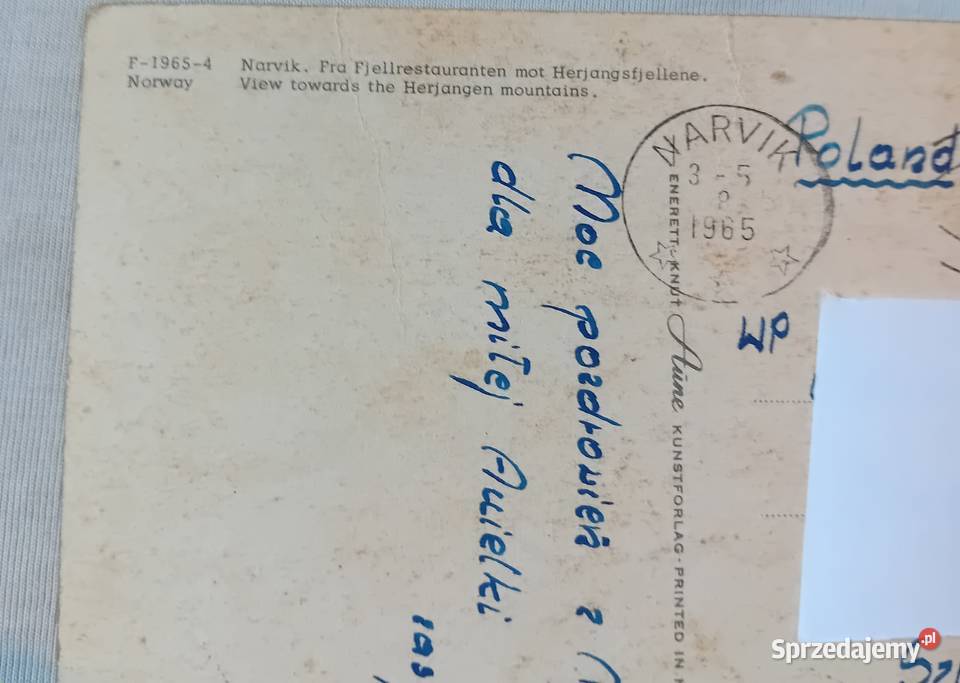 F-1965-4 Narvik. Fra Fjellrestauranten mot Herjangsfjellene.
Norway View towards the Herjangen mountains.
NARVIK
3 - 5
1965
Poland
WP
Moc pozdrowień z
dla miłej Anielki
ENERETT: KNUT Aune KUNSTFORLAG · PRINTED IN
Sprzedajemy.pl